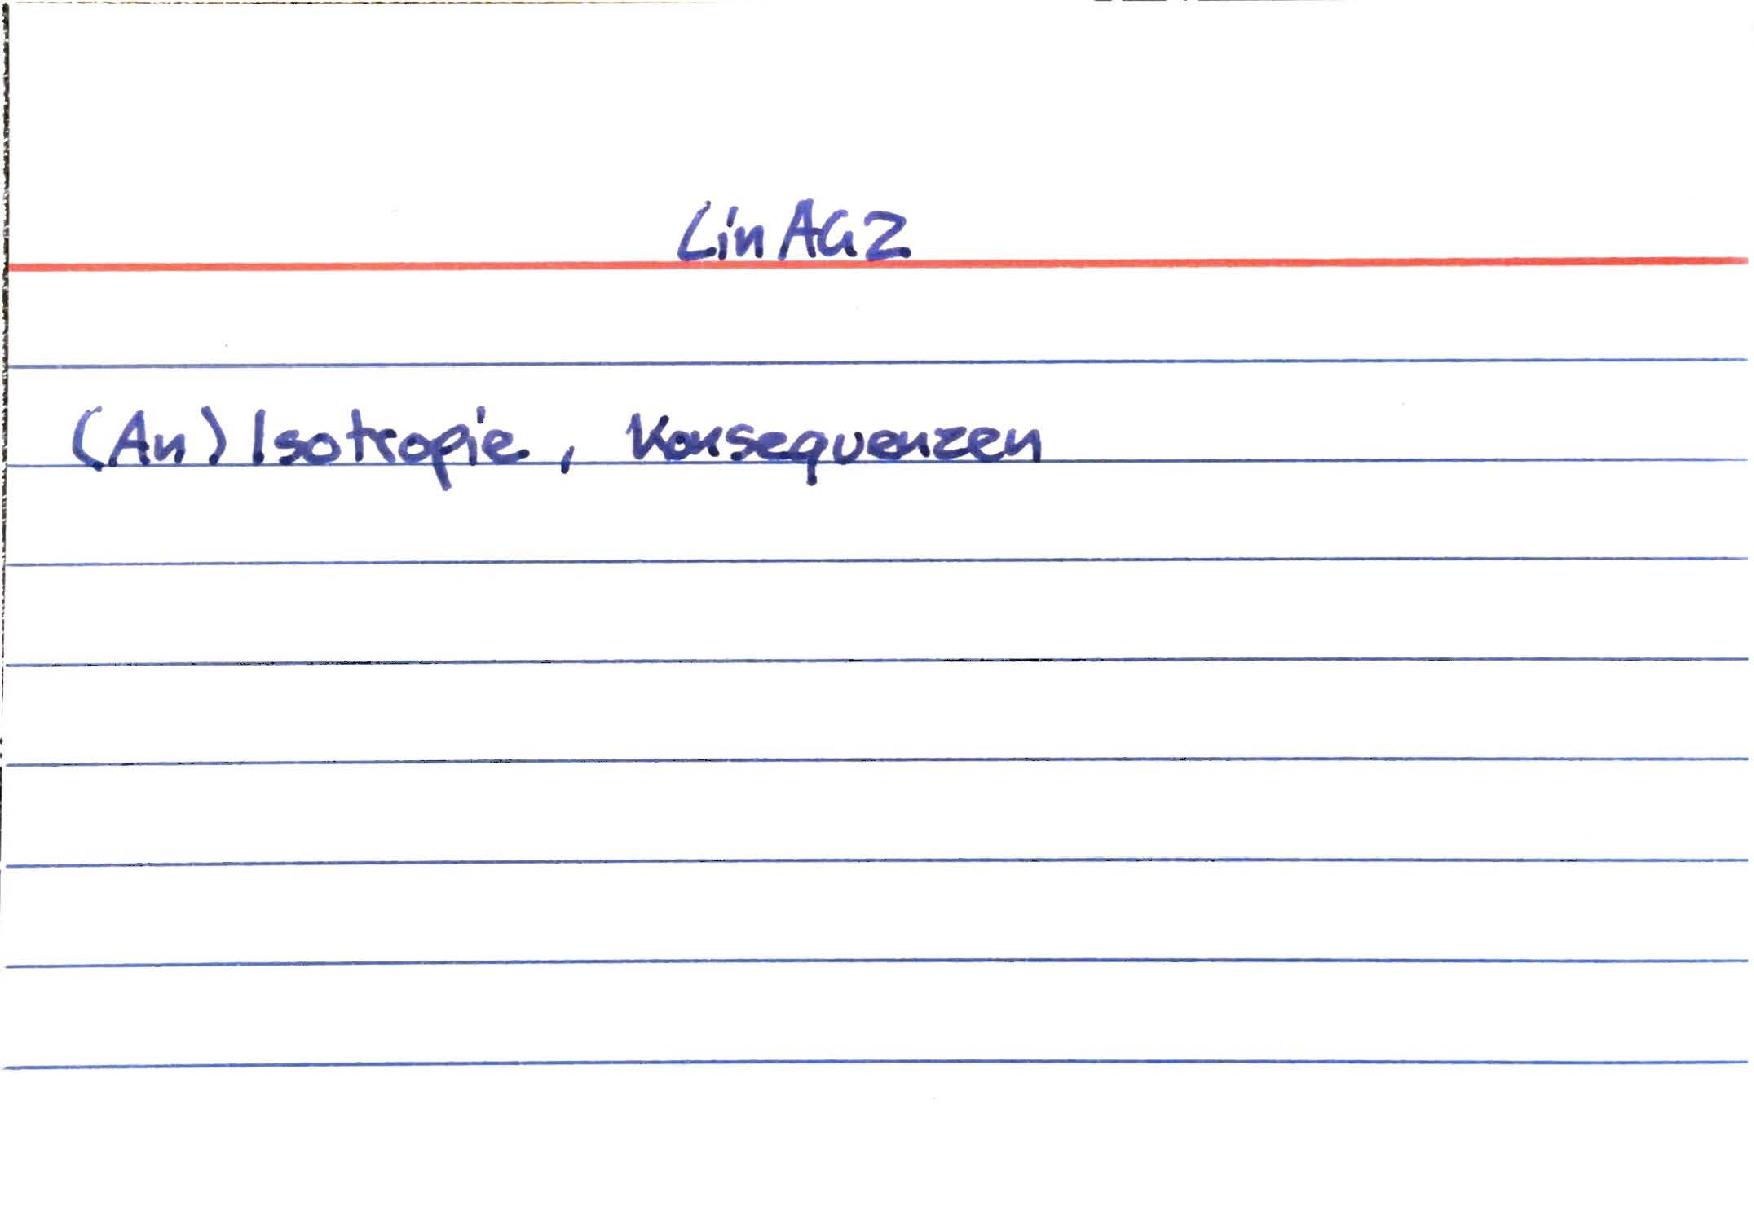 LinAG2
(An)Isotropie, Konsequenzen